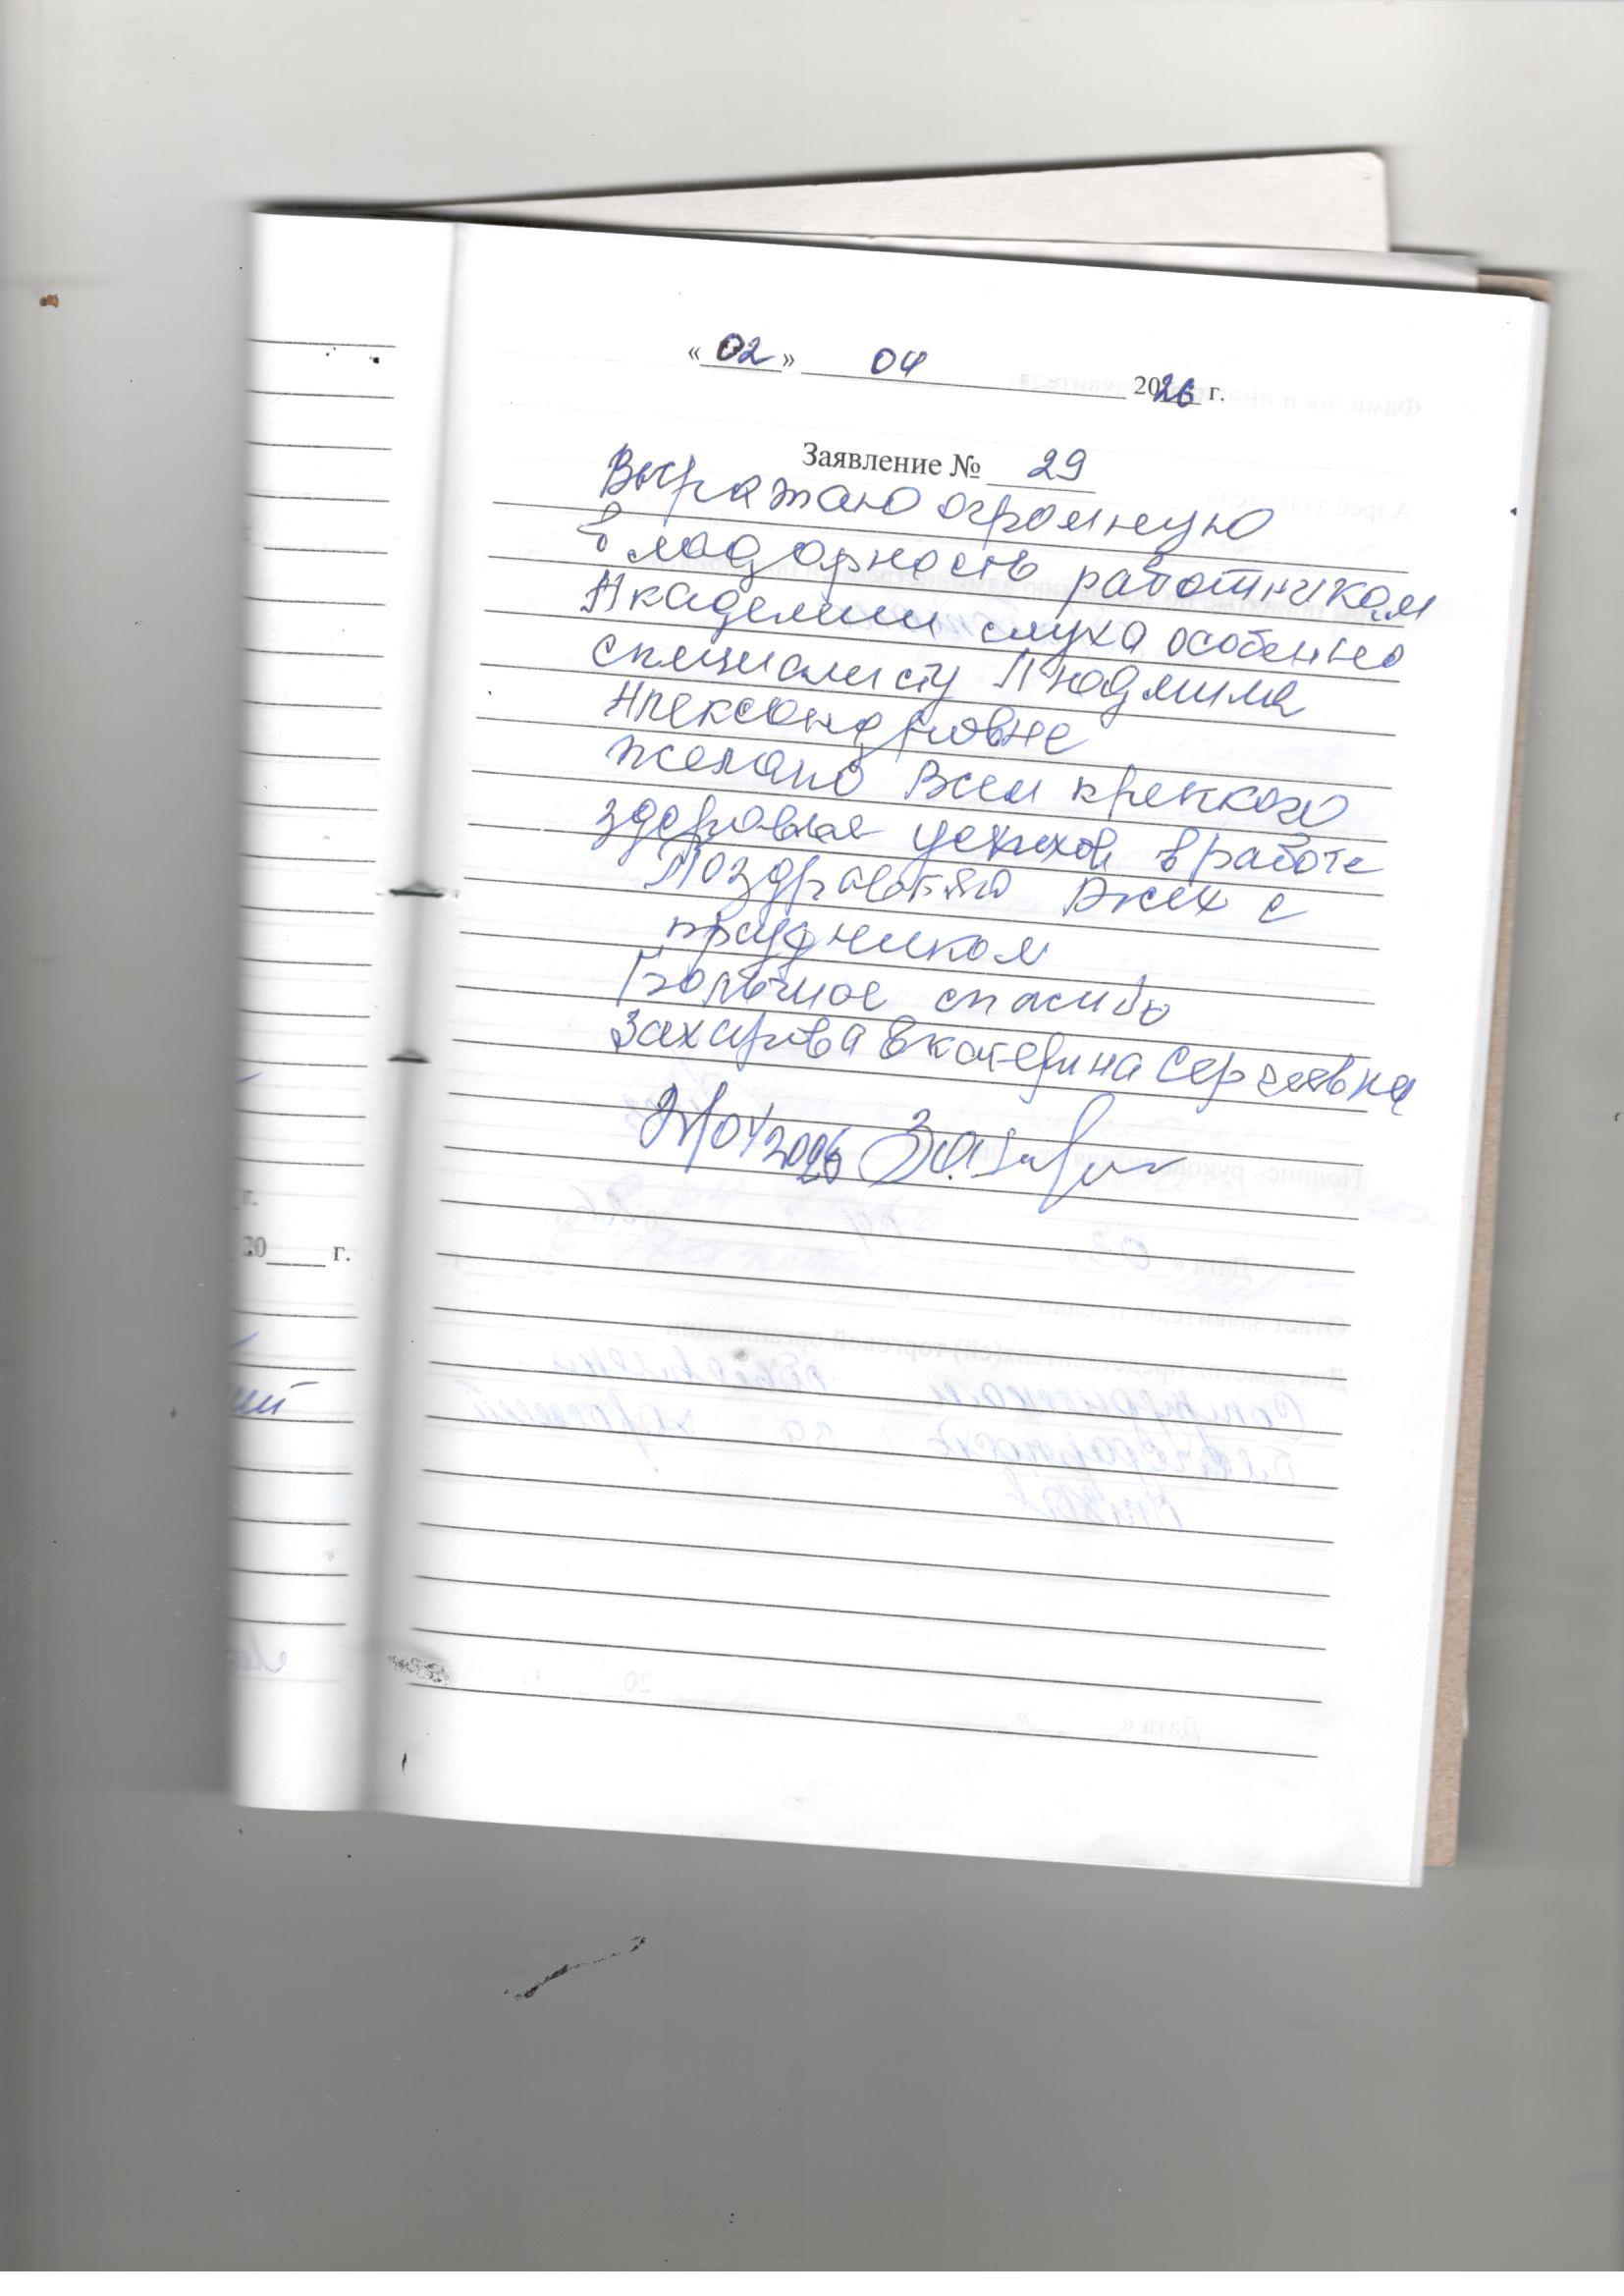 « 02 » 04 2026 г.
Заявление № 29
Выражаю огромную
благодарность работникам
Академии слуха особенно
специалисту Людмила
Александровне
Желаю Всем крепкого
здоровья успехов в работе
Поздравляю Всех с
праздником
Большое спасибо
Захарова Екатерина Сергеевна
2/04 2026
20____ г.